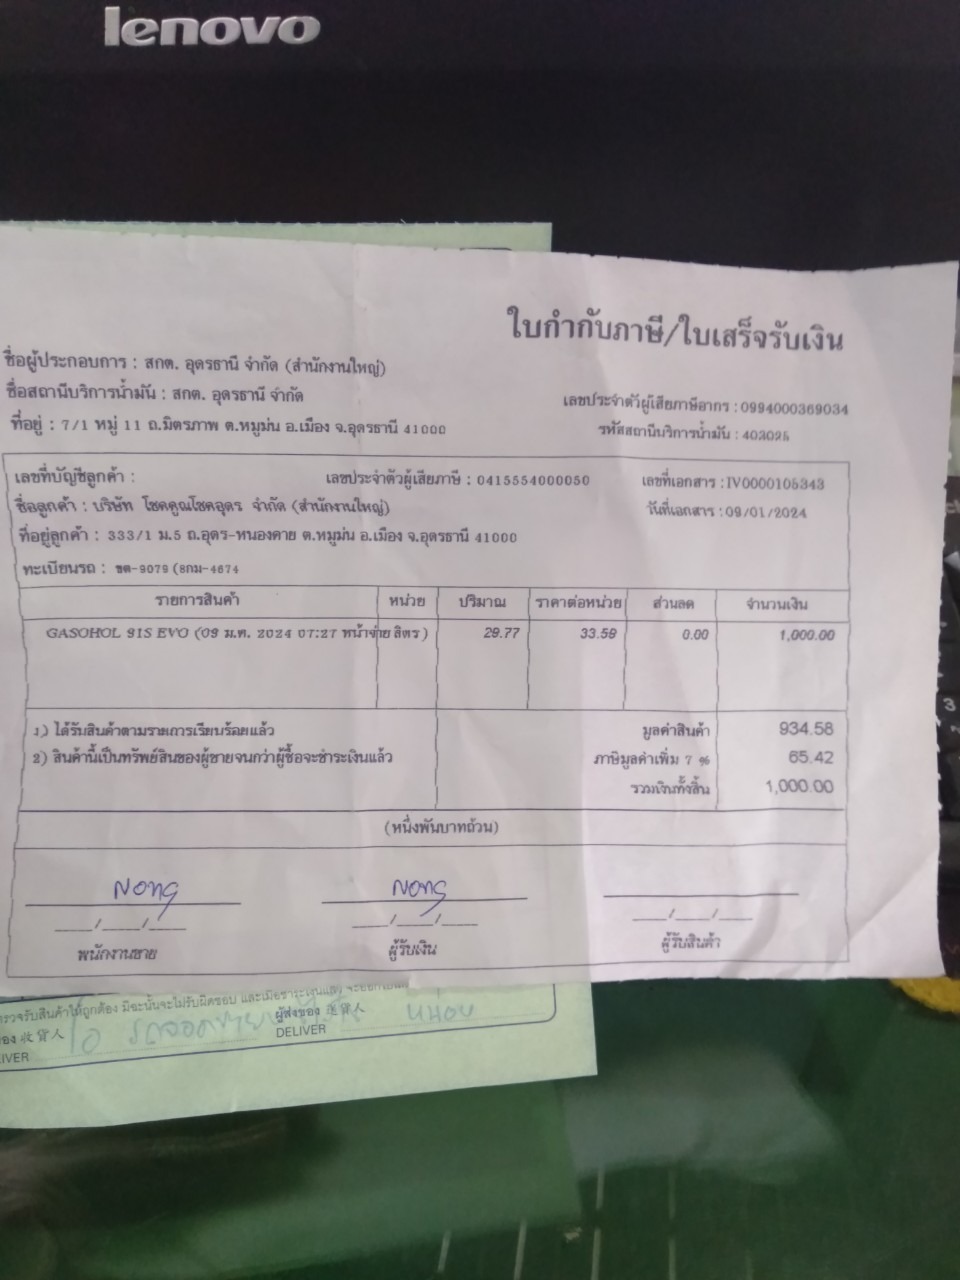 lenovo
ใบกำกับภาษี/ใบเสร็จรับเงิน
ชื่อผู้ประกอบการ : สกต. อุดรธานี จำกัด (สำนักงานใหญ่)
ชื่อสถานีบริการน้ำมัน : สกต. อุดรธานี จำกัด
เลขประจำตัวผู้เสียภาษีอากร : 0994000369034
ที่อยู่ : 7/1 หมู่ 11 ถ.มิตรภาพ ต.หมูม่น อ.เมือง จ.อุดรธานี 41000
รหัสสถานีบริการน้ำมัน : 403025
เลขที่บัญชีลูกค้า : เลขประจำตัวผู้เสียภาษี : 0415554000050 เลขที่เอกสาร : IV0000105343
ชื่อลูกค้า : บริษัท โชคคูณโชคอุดร จำกัด (สำนักงานใหญ่) วันที่เอกสาร : 09/01/2024
ที่อยู่ลูกค้า : 333/1 ม.5 ถ.อุดร-หนองคาย ต.หมูม่น อ.เมือง จ.อุดรธานี 41000
ทะเบียนรถ : ขต-9079 (8กม-4674
รายการสินค้า หน่วย ปริมาณ ราคาต่อหน่วย ส่วนลด จำนวนเงิน
GASOHOL 91S EVO (09 ม.ค. 2024 07:27 หน้าจ่าย ลิตร ) 29.77 33.59 0.00 1,000.00
1) ได้รับสินค้าตามรายการเรียบร้อยแล้ว มูลค่าสินค้า 934.58
2) สินค้านี้เป็นทรัพย์สินของผู้ขายจนกว่าผู้ซื้อจะชำระเงินแล้ว ภาษีมูลค่าเพิ่ม 7 % 65.42
รวมเงินทั้งสิ้น 1,000.00
(หนึ่งพันบาทถ้วน)
Nong Nong
___/___/___ ___/___/___ ___/___/___
พนักงานขาย ผู้รับเงิน ผู้รับสินค้า
ตรวจรับสินค้าให้ถูกต้อง มิฉะนั้นจะไม่รับผิดชอบ และเมื่อชำระเงินแล้ว
ของ 收貨人 ผู้ส่งของ 送貨人
IVER DELIVER